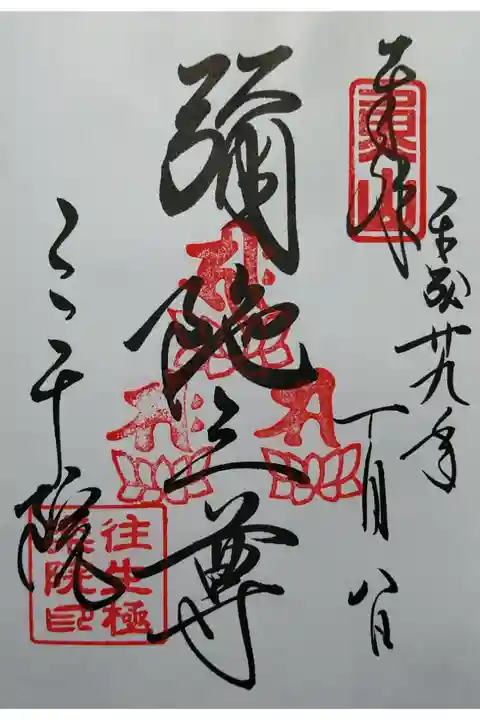 奉拝
魚山
平成廿九年
一月八日
彌陀三尊
三千院
往生極
楽院印